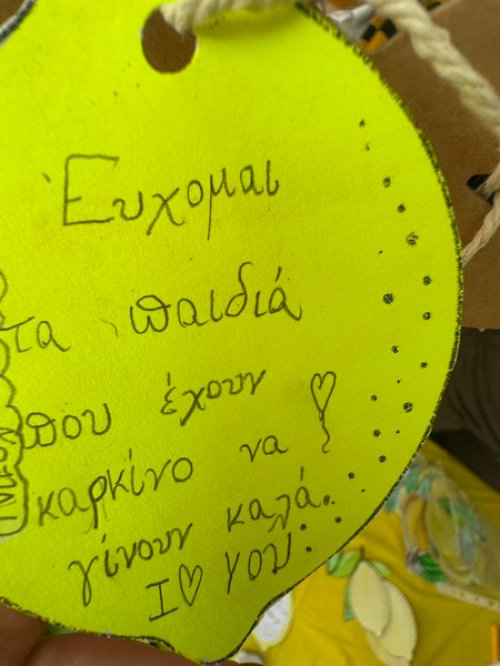 Εύχομαι
τα παιδιά
που έχουν
καρκίνο να
γίνουν καλά..
I♡YOU